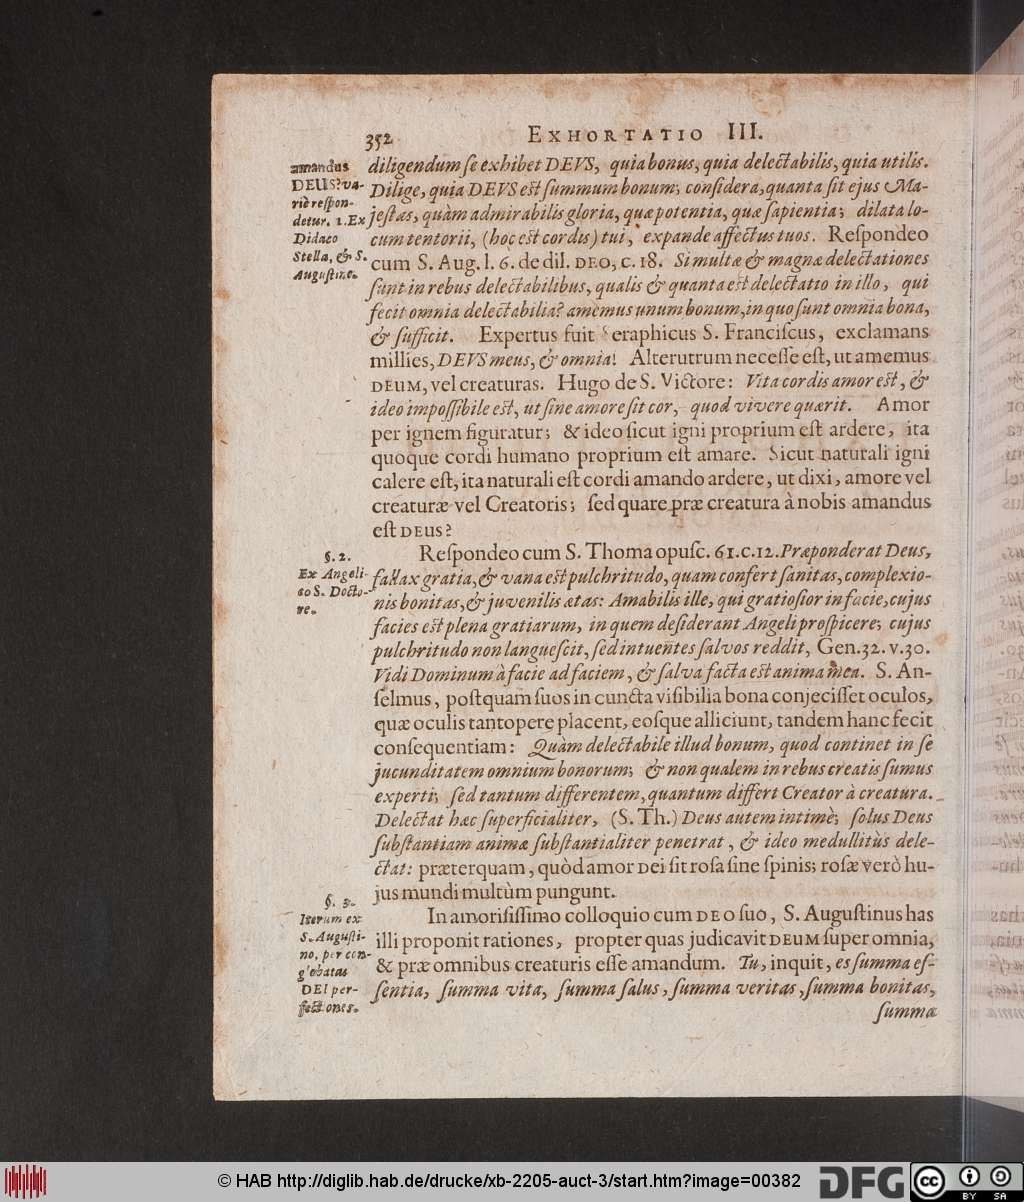 352 EXHORTATIO III.
amandus
DEUS? va-
riè respon-
detur. 1. Ex
Didaco
Stella, & S.
Augustine.
diligendum se exhibet DEVS, quia bonus, quia delectabilis, quia utilis.
Dilige, quia DEVS est summum bonum; considera, quanta sit ejus Ma-
jestas, quàm admirabilis gloria, quæ potentia, quæ sapientia; dilata lo-
cum tentorii, (hoc est cordis) tui, expande affectus tuos. Respondeo
cum S. Aug. l. 6. de dil. DEO, c. 18. Si multæ & magnæ delectationes
sunt in rebus delectabilibus, qualis & quanta est delectatio in illo, qui
fecit omnia delectabilia? amemus unum bonum, in quo sunt omnia bona,
& sufficit. Expertus fuit Seraphicus S. Franciscus, exclamans
millies, DEVS meus, & omnia! Alterutrum necesse est, ut amemus
DEUM, vel creaturas. Hugo de S. Victore: Vita cordis amor est, &
ideo impossibile est, ut sine amore sit cor, quod vivere quærit. Amor
per ignem figuratur; & ideo sicut igni proprium est ardere, ita
quoque cordi humano proprium est amare. Sicut naturali igni
calere est, ita naturali est cordi amando ardere, ut dixi, amore vel
creaturæ vel Creatoris; sed quare præ creatura à nobis amandus
est DEUS?
§. 2.
Ex Angeli-
co S. Docto-
re.
Respondeo cum S. Thoma opusc. 61. c. 12. Præponderat Deus,
fallax gratia, & vana est pulchritudo, quam confert sanitas, complexio-
nis bonitas, & juvenilis ætas: Amabilis ille, qui gratiosior in facie, cujus
facies est plena gratiarum, in quem desiderant Angeli prospicere; cujus
pulchritudo non languescit, sed intuentes salvos reddit, Gen. 32. v. 30.
Vidi Dominum à facie ad faciem, & salva facta est anima mea. S. An-
selmus, postquam suos in cuncta visibilia bona conjecisset oculos,
quæ oculis tantopere placent, eosque alliciunt, tandem hanc fecit
consequentiam: Quàm delectabile illud bonum, quod continet in se
jucunditatem omnium bonorum; & non qualem in rebus creatis sumus
experti; sed tantum differentem, quantum differt Creator à creatura.
Delectat hæc superficialiter, (S. Th.) Deus autem intimè; solus Deus
substantiam animæ substantialiter penetrat, & ideo medullitùs dele-
ctat: præterquam, quòd amor DEI sit rosa sine spinis; rosæ verò hu-
jus mundi multùm pungunt.
§. 3.
Iterum ex
S. Augusti-
no, per con-
globatas
DEI per-
fectiones.
In amorisissimo colloquio cum DEO suo, S. Augustinus has
illi proponit rationes, propter quas judicavit DEUM super omnia,
& præ omnibus creaturis esse amandum. Tu, inquit, es summa es-
sentia, summa vita, summa salus, summa veritas, summa bonitas,
summa
© HAB http://diglib.hab.de/drucke/xb-2205-auct-3/start.htm?image=00382
DFG
cc
BY SA